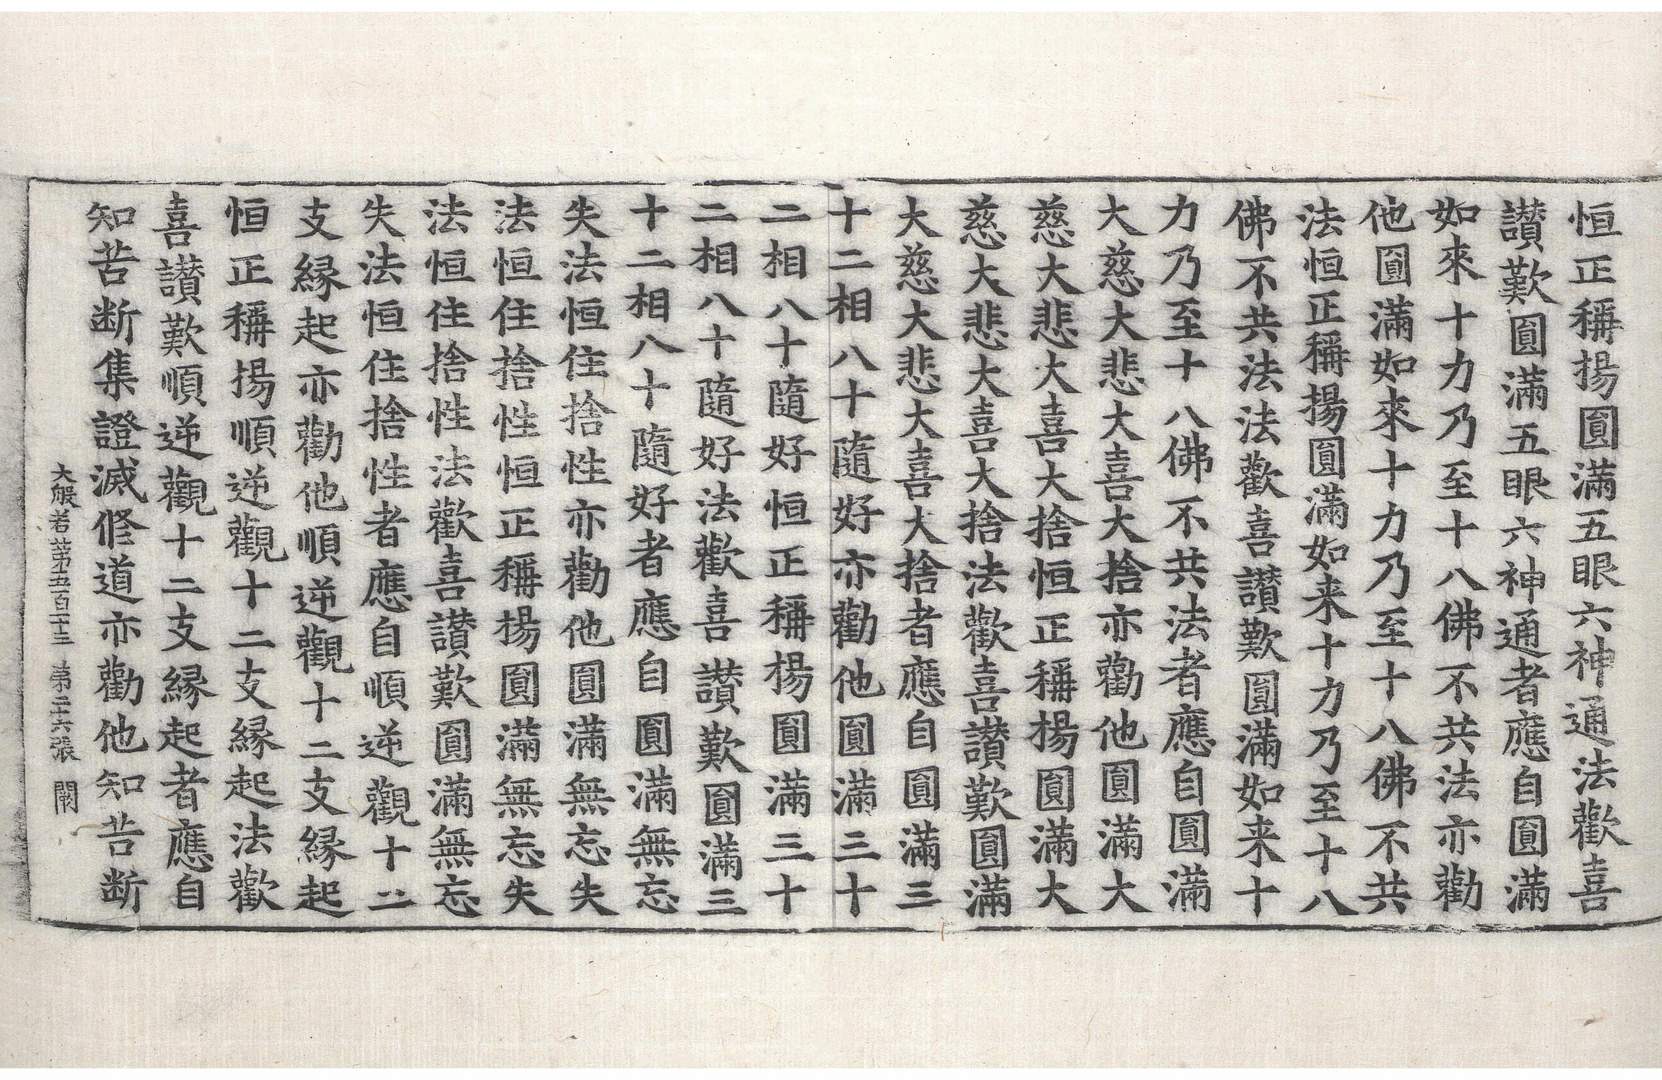 恒正稱揚圓滿五眼六神通法歡喜
讃歎圓滿五眼六神通者應自圓滿
如來十力乃至十八佛不共法亦勸
他圓滿如來十力乃至十八佛不共
法恒正稱揚圓滿如来十力乃至十八
佛不共法法歡喜讃歎圓滿如来十
力乃至十八佛不共法者應自圓滿
大慈大悲大喜大捨亦勸他圓滿大
慈大悲大喜大捨恒正稱揚圓滿大
慈大悲大喜大捨法歡喜讃歎圓滿
大慈大悲大喜大捨者應自圓滿三
十二相八十隨好亦勸他圓滿三十
二相八十隨好恒正稱揚圓滿三十
二相八十隨好法歡喜讃歎圓滿三
十二相八十隨好者應自圓滿無忘
失法恒住捨性亦勸他圓滿無忘失
法恒住捨性恒正稱揚圓滿無忘失
法恒住捨性法歡喜讃歎圓滿無忘
失法恒住捨性者應自順逆觀十二
支縁起亦勸他順逆觀十二支縁起
恒正稱揚順逆觀十二支縁起法歡
喜讃歎順逆觀十二支縁起者應自
知苦断集證滅修道亦勸他知苦断
大般若第五百二十三 第二十六張 闡